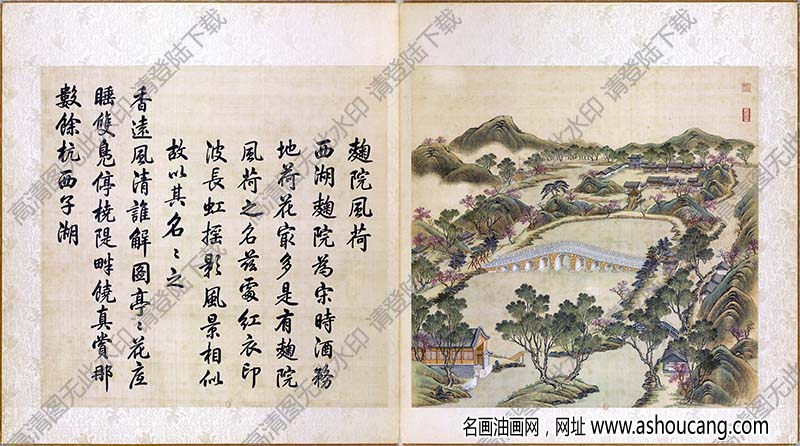 麴院風荷
西湖麴院為宋時酒務
地荷花㝡多是有麴院
風荷之名茲處紅衣印
波長虹搖影風景相似
故以其名々之
香遠風清誰解圖亭々花底
睡雙鳧停橈隄畔饒真賞那
數餘杭西子湖
高清图无此水印 请登陆下载
名画油画网，网址 www.ashoucang.com